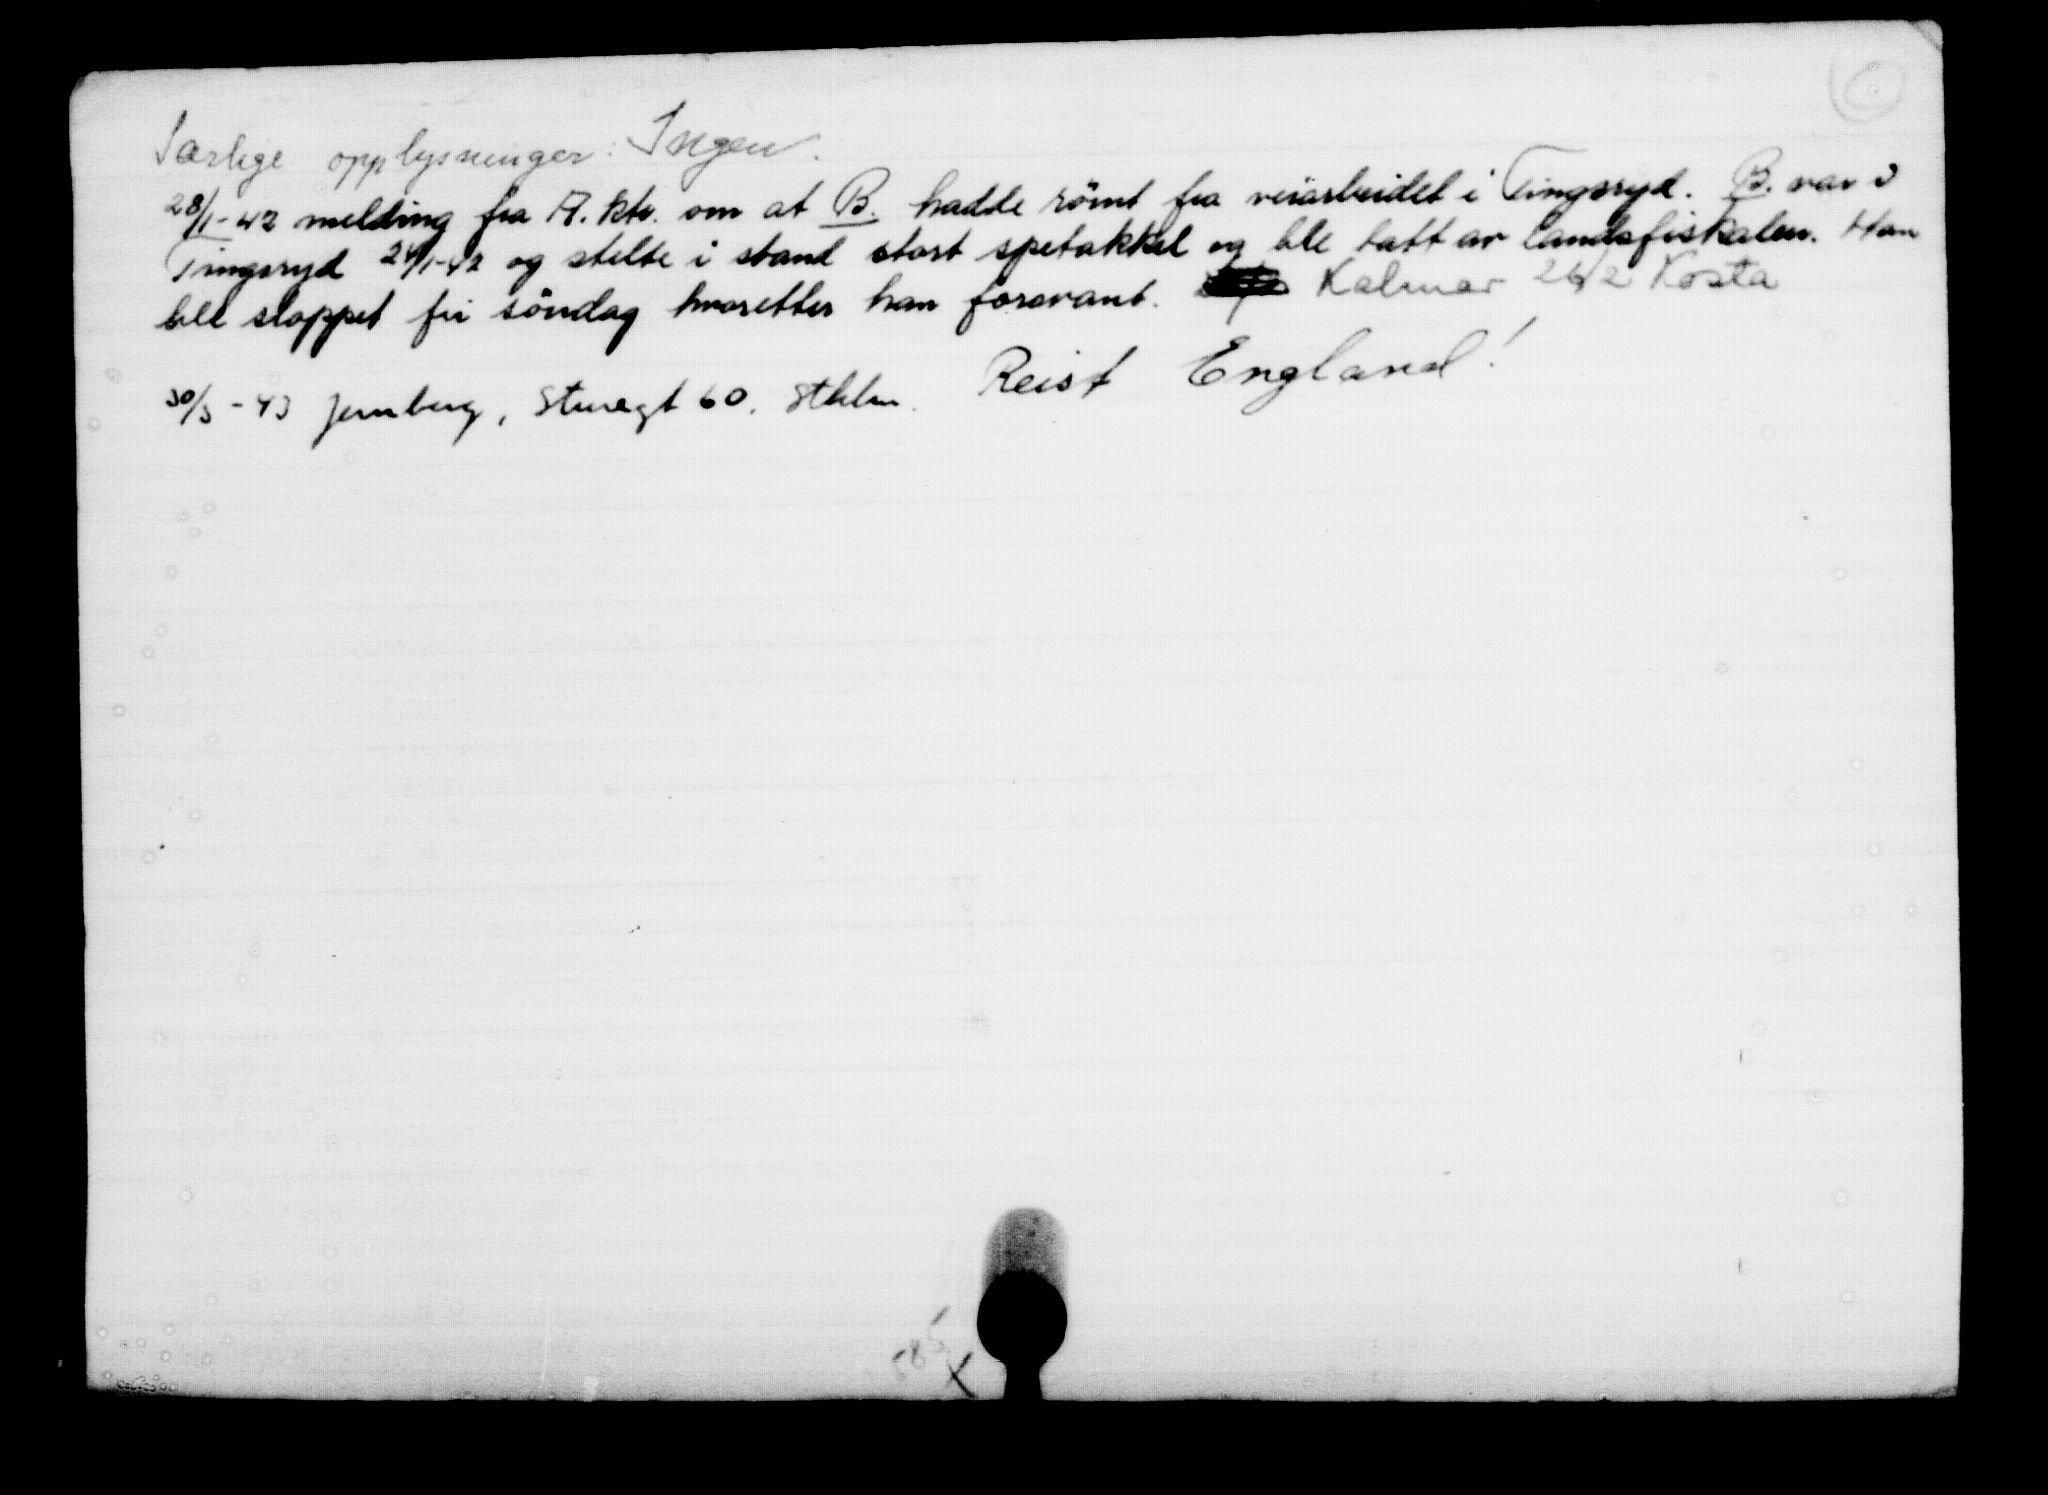 Særlige opplysninger: Ingen.
28/1-42 melding fra A.ktr. om at B. hadde römt fra veiarbeidet i Tingsryd. B. var i
Tingsryd 24/1-42 og stelte i stand stort spetakkel og ble tatt av landsfiskalen. Han
ble sloppet fri söndag hvoretter han forsvant. Kalmar 26/2 Kosta
30/3-43 Jernberg, Sturegt 60, Sthlm. Reist England!
585
X